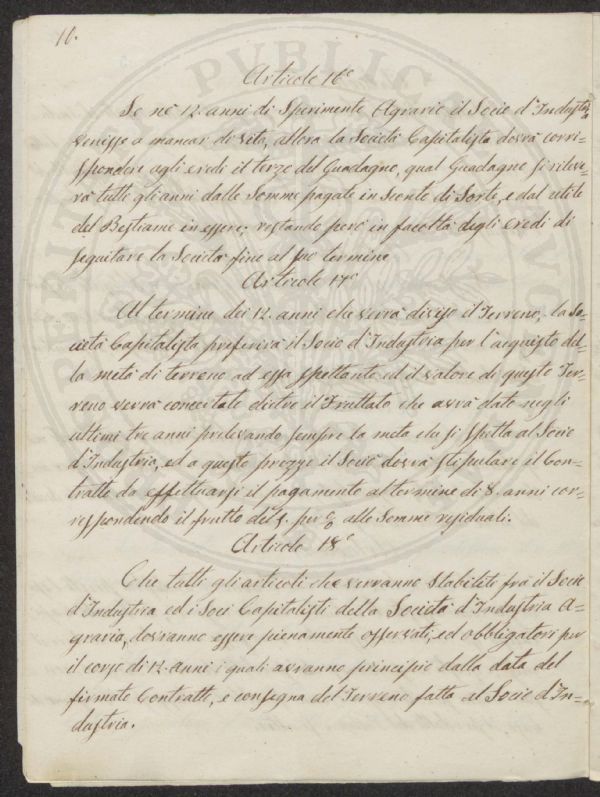 10.
Articolo 16°
Se ne' 12. anni di Sperimento Agrario il Socio d'Industria
venisse a mancar di vita, allora la Società Capitalista dovrà corri-
spondere agli eredi il terzo del Guadagno, qual Guadagno si rileve-
rà tutti gli anni dalle Somme pagate in Sconto di Sorte, e dal utile
del Bestiame in essere; restando però in facoltà degli Eredi di
seguitare la Società fino al suo termine
Articolo 17°
Al termine dei 12. anni che verrà diviso il Terreno, la So-
cietà Capitalista preferirà il Socio d'Industria per l'acquisto del-
la metà di terreno ad essa spettante ed il valore di questo Ter-
reno verrà concertato dietro il Fruttato che avrà dato negli
ultimi tre anni prelevando sempre la metà che si spetta al Socio
d'Industria, ed a questo prezzo il Socio dovrà stipulare il Con-
tratto da effettuarsi il pagamento al termine di 8. anni cor-
rispondendo il frutto del 5. per % alle Somme residuali.
Articolo 18°
Che tutti gli articoli che verranno Stabiliti fra il Socio
d'Industria ed i Soci Capitalisti della Società d'Industria A-
graria, dovranno essere pienamente osservati, ed obbligatori per
il corso di 12. anni i quali avranno principio dalla data del
firmato Contratto, e consegna del Terreno fatta al Socio d'In-
dustria.
PERITI PUBLICA AUG